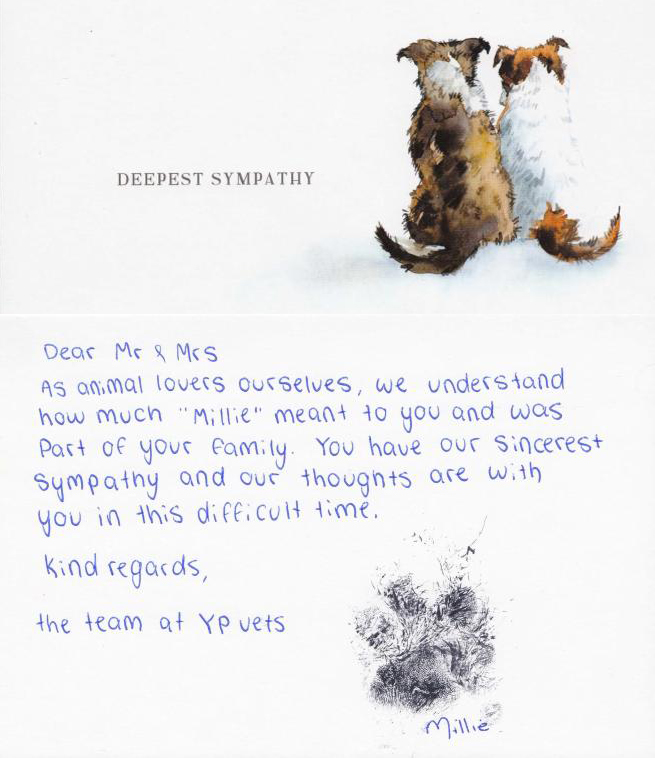 DEEPEST SYMPATHY
Dear Mr & Mrs
As animal lovers ourselves, we understand
how much "Millie" meant to you and was
Part of your family. You have our sincerest
sympathy and our thoughts are with
you in this difficult time.
Kind regards,
the team at YP vets
Millie